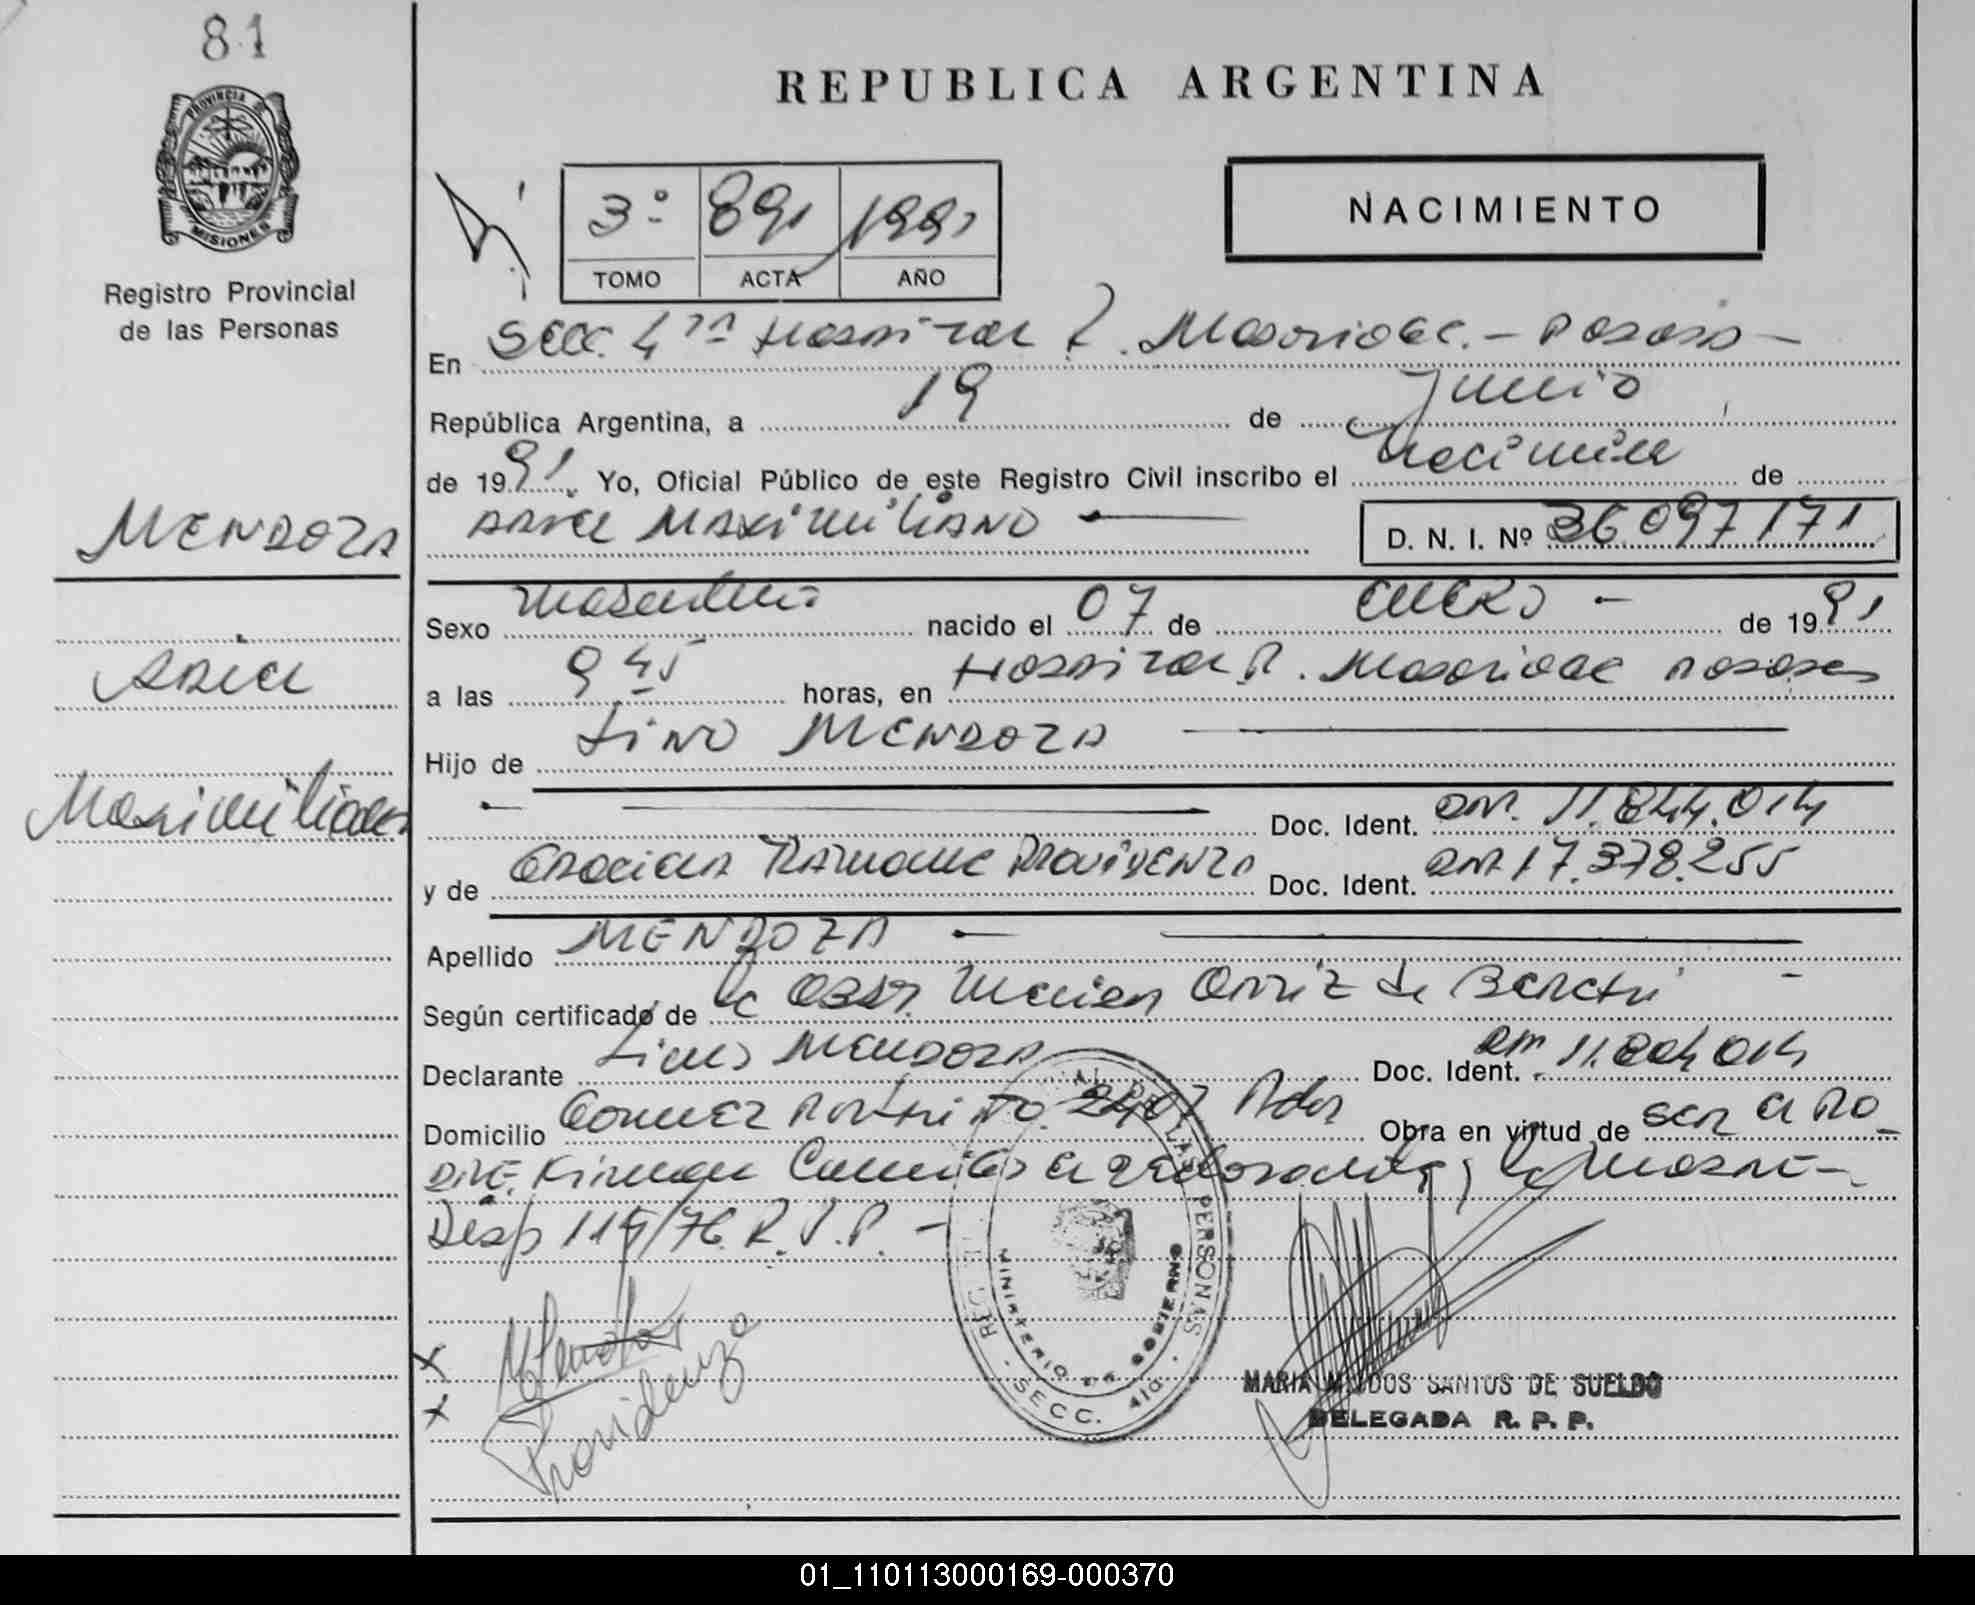 81
REPUBLICA ARGENTINA
PROVINCIA DE
MISIONES
Registro Provincial
de las Personas
3º 891 1991
TOMO ACTA AÑO
NACIMIENTO
En Secc. 4ta Hospital R. Madariaga. - Posadas -
República Argentina, a 19 de Junio
de 1991. Yo, Oficial Público de este Registro Civil inscribo el nacimiento de
MENDOZA
ARIEL MAXIMILIANO
D. N. I. Nº 36097171
Sexo masculino nacido el 07 de ENERO - de 1991
ARIEL
a las 9 45 horas, en Hospital R. Madariaga Posadas
Hijo de LINO MENDOZA
Maximiliano
Doc. Ident. DNI. 11.844.014
y de Graciela Ramona PROVIDENZA Doc. Ident. DNI 17.378.255
Apellido MENDOZA
Según certificado de la Obst. Ortiz de
Declarante Lino MENDOZA Doc. Ident. DNI 11.804.014
Domicilio Gomez Portinho 2407 Pdas Obra en virtud de ser el PA
DRE. Firman el declarante y la madre -
Disp 115/76 R.P.P. -
Mendoza
Providenza
X
X
REG. PROVINCIAL DE LAS PERSONAS
MINISTERIO DE GOBIERNO
SECC. 4ta.
MARIA M. DOS SANTOS DE SUELDO
DELEGADA R. P. P.
01_110113000169-000370